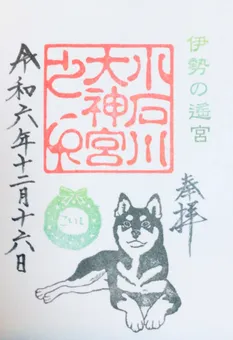 伊勢の遙宮
奉拝
小石川
大神宮
之印
こいし
令和六年十二月十六日